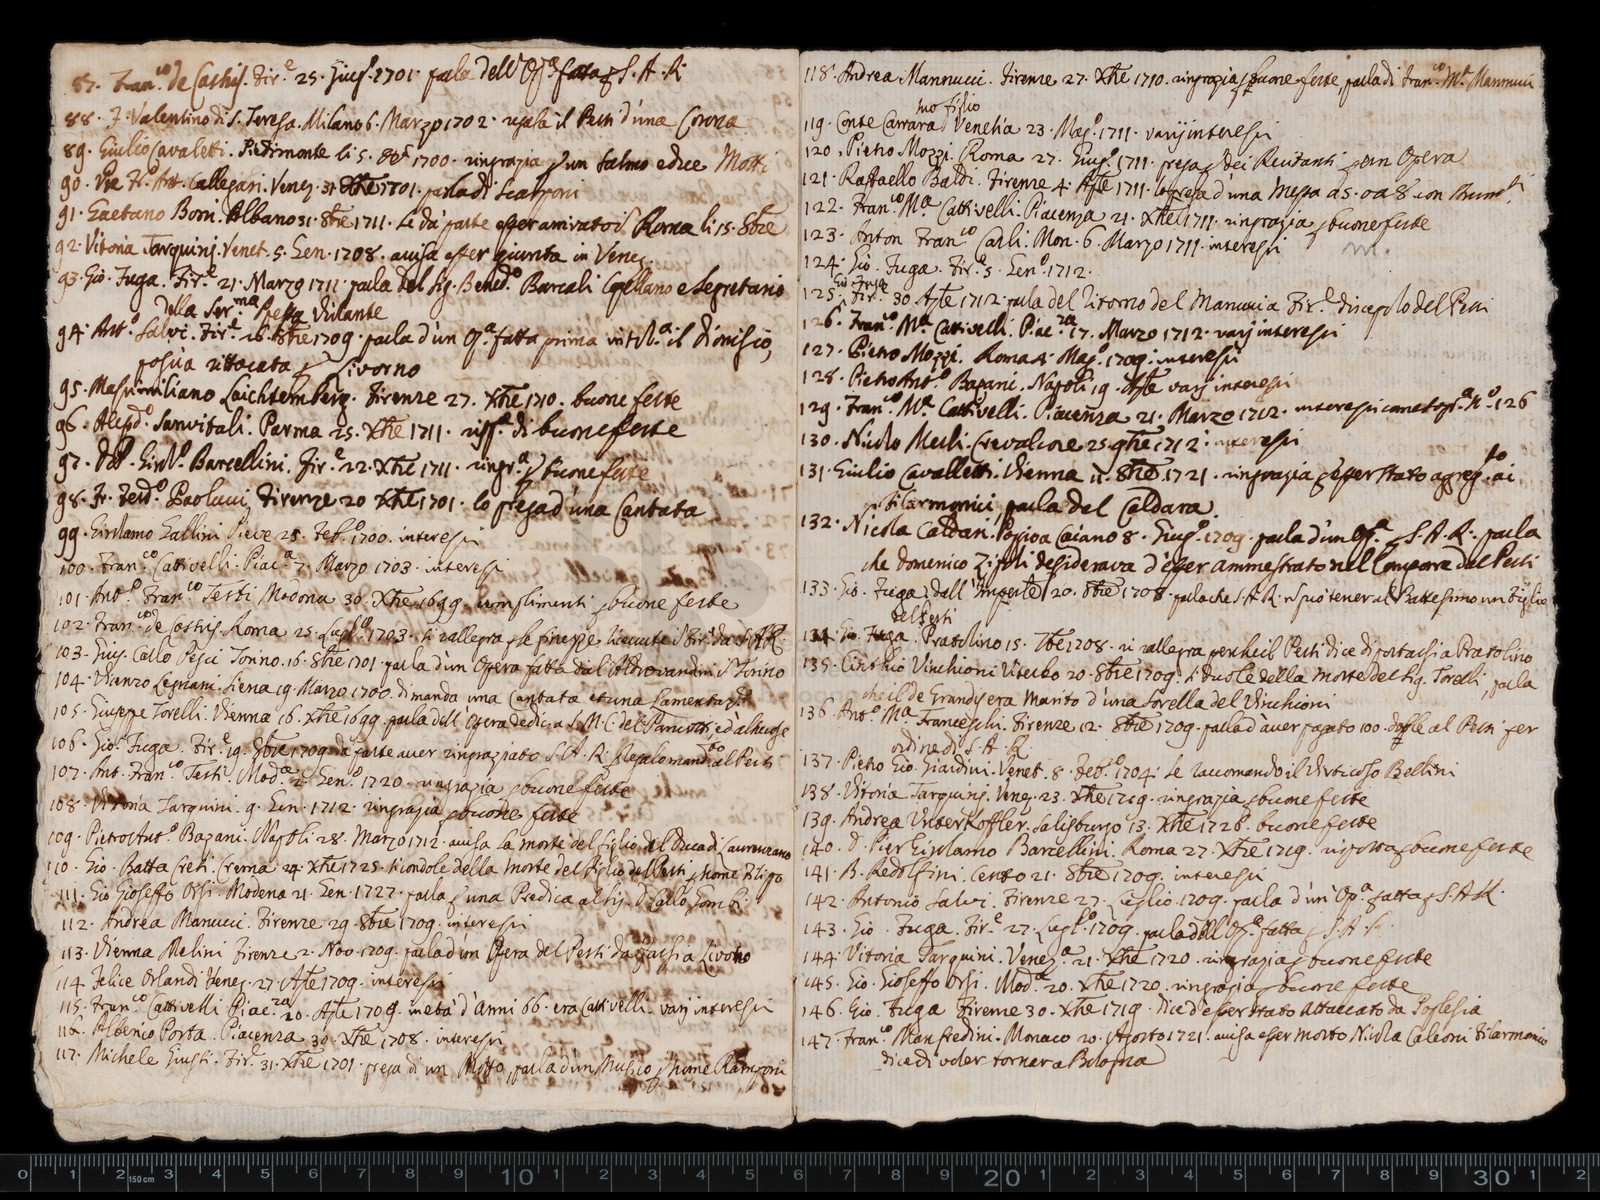 87. Fran.co de Castris. Fir.e 25. Giug.o 1701. parla dell'Op.a fatta p S. A. R.
88. F. Valentino di S. Teresa. Milano 6. Marzo 1702. regala il Perti d'una Corona
89. Giulio Cavaletti. Piedimonte li 5. 1700. ringrazia p un Salmo e dice Motti
90. P.re Fr. Ant. Callegari. Venez. 31. Xbre 1701. parla di Scarponi
91. Gaetano Boni. Albano 31. 8bre 1711. le dà parte esser arrivato in Roma li 15. 8bre
92. Vitoria Tarquinij. Venet. 5. Gen. 1708. avisa esser giunta in Venez.
93. Gio. Fuga. Fir.e 21. Marzo 1711. parla del Sig. Bened.o Barcali Capellano e Segretario
della Ser.ma Pssa Violante
94. Ant.o Salvi. Fir.e 26. 8bre 1709. parla d'un Op.a fatta prima intit.a il Dionisio,
poscia rittocata p Livorno
95. Massimiliano Laichtemberg. Firenze 27. Xbre 1710. buone feste
96. Aless.o Sanvitali. Parma 25. Xbre 1711. risp.a di buone feste
97. Girol.o Barcellini. Fir.e 22. Xbre 1711. ringr.a p buone feste
98. Fr. Ferd.o Paolucci. Firenze 20 Xbre 1701. lo prega d'una Cantata
99. Girolamo Gallini Pieve 25. Feb.o 1700. interessi
100. Fran.co Cattivelli. Piac.a 7. Marzo 1703. interessi
101. Ant.o Fran.co Testi Modona 30. Xbre 1699. complimenti p buone feste
102. Fran.co de Castris. Roma 25. Lugl.o 1703. si rallegra p le finezze riceute in Fir.e da S. A. R.
103. Gius. Carlo Pesci Torino. 16. 8bre 1701. parla d'un Opera fatta dal Aldrovandini in Torino
104. Vicenzo Legnani. Siena 19. Marzo 1700. dimanda una Cantata et una Lamentaz.e
105. Giuseppe Torelli. Vienna 16. Xbre 1699. parla dell Opera dedic.a S. M. C. del Pancotti, ed'altre
106. Gio. Fuga. Fir.e 19. 8bre 1709. dà parte aver ringraziato S. A. R. regalo mand.to al Perti
107. Ant. Fran.co Testi. Mod.a 2. Gen.o 1720. ringrazia p buone feste
108. Vitoria Tarquini. 9. Gen. 1712. ringrazia p buone feste
109. Pietro Ant.o Bagani. Napoli 28. Marzo 1712. avisa la morte del figlio del Duca di Laurenzano
110. Gio. Batta Creti. Crema 24. Xbre 1725. si condole della morte del figlio del Perti p nome Filippo
111. Gio Gioseffo Orsi. Modena 21. Gen. 1727. parla p una Predica al Sig. D. Carlo
112. Andrea Manucci. Firenze 29. 8bre 1709. interessi
113. Vienna Melini Firenze 2. Nov. 1709. parla d'un Opera del Perti da farsi a Livorno
114. Felice Orlandi Venez. 27. Ap.le 1709. interessi
115. Fran.co Cattivelli Piac.za 20. Ap.le 1709. in età d'Anni 66. era Cattivelli. varij interessi
116. Albenio Porta. Piacenza 30. Xbre 1708. interessi
117. Michele Giusti. Fir.e 31. Xbre 1701. prega di un Motto, parla d'un Musico p nome Ramponi
118. Andrea Mannucci. Firenze 27. Xbre 1710. ringrazia p buone feste, parla di Fran.co M.a Mannucci
suo figlio
119. Conte Carrara Venetia 23. Mag.o 1711. varij interessi
120. Pietro Mozzi. Roma 27. Giug.o 1711. prega p dei Recitanti p un Opera
121. Raffaello Baldi. Firenze 4. Ap.le 1711. lo prega d'una Messa a 5. o a 8 con Strum.ti
122. Fran.co M.a Cattivelli. Piacenza 21. Xbre 1711. ringrazia p buone feste
123. Anton Fran.co Carli. Mon. 6. Marzo 1711. interessi
m.
124. Gio. Fuga. Fir.e 5. Gen.o 1712.
Gio. Fuga
125. Fir.e 30 Ap.le 1712. parla del ritorno del Manucci a Fir.e discepolo del Perti
126. Fran.co M.a Cattivelli. Piac.za 17. Marzo 1712. varij interessi
127. Pietro Mozzi. Roma 4. Mag.o 1709. interessi
128. Pietro Ant.o Bagani. Napoli 19. Ap.le varij interessi
129. Fran.co M.a Cattivelli. Piacenza 21. Marzo 1712. interessi come sop.a N.o 126
130. Nicolo Merli. Crevalcore 25. 9bre 1712. interessi
131. Giulio Cavalletti. Vienna 11. 8bre 1721. ringrazia p esser stato aggreg.to ai
filarmonici, parla del Caldara.
132. Nicola Caldari. Poggio a Caiano 8. Giug.o 1709. parla d'un Op.a p S. A. R. parla
che Domenico Zipoli desiderava d'esser ammestrato nel Comporre dal Perti
133. Gio. Fuga, dall'Imperiale 20. 8bre 1708. parla che S. A. R. vuol tener al Battesimo un Figlio
del Perti
134. Gio. Fuga. Pratolino 15. 7bre 1708. si rallegra perche il Perti dice di portarsi a Pratolino
135. Cinthio Vinchioni Viterbo 20. 8bre 1709. si duole della morte del Sig. Torelli, parla
che il de Grandis era Marito d'una Sorella del Vinchioni
136. Ant.o M.a Franceschi. Firenze 12. 8bre 1709. parla d'aver pagato 100. doble al Perti per
ordine di S. A. R.
137. Pietro Gio. Giardini. Venet. 8. Feb.o 1704. le raccomando il Virtuoso Bellini
138. Vitoria Tarquinij. Venez. 23. Xbre 1719. ringrazia p buone feste
139. Andrea Unterkoffler. Salisburgo 13. Xbre 1726. buone feste
140. D. Pier Girolamo Barcellini. Roma 27. Xbre 1719. risposta p buone feste
141. B. Redolfini. Cento 21. 8bre 1709. interessi
142. Antonio Salvi. Firenze 27. Luglio 1709. parla d'un Op.a fatta p S. A. R.
143. Gio. Fuga. Fir.e 27. Lugl.o 1709. parla dell Op.a fatta p S. A. R.
144. Vitoria Tarquini. Venez.a 21. Xbre 1720. ringrazia p buone feste
145. Gio. Gioseffo Orsi. Mod.a 20. Xbre 1720. ringrazia p buone feste
146. Gio. Fuga Firenze 30. Xbre 1719. dice d'esser stato attaccato da Poplesia
147. Fran.co Manfredini. Monaco 20. Agosto 1721. avisa esser morto Nicola Caleoni Filarmonico
dice di voler tornar a Bologna